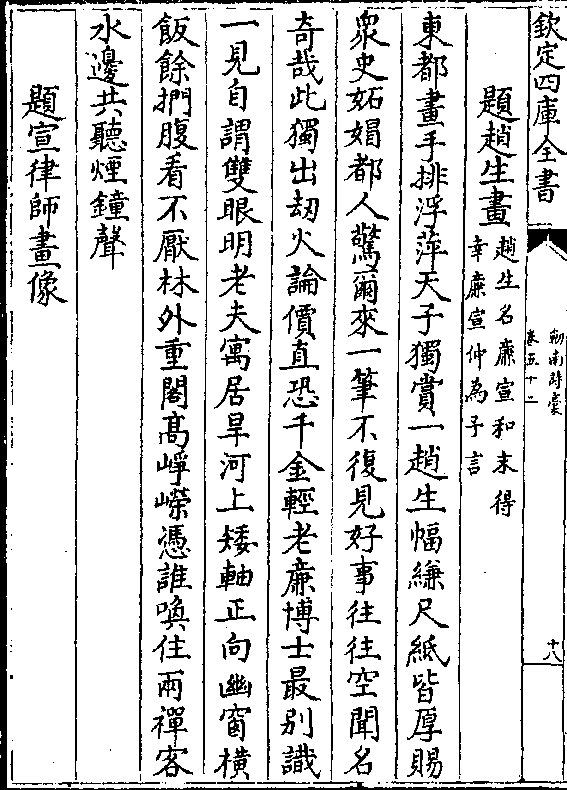 欽定四庫全書
劍南詩稾
卷五十二
十八
題趙生畫
趙生名廉宣和末得
幸廉宣仲為予言
東都畫手排浮萍天子獨賞一趙生幅縑尺紙皆厚賜
衆史妬娼都人驚爾來一筆不復見好事往往空聞名
奇哉此獨出刼火論價直恐千金輕老廉博士最别識
一見自謂雙眼明老夫寓居旱河上矮軸正向幽窗横
飯餘捫腹看不厭林外重閣髙崢嶸憑誰喚住兩禪客
水邊共聽煙鐘聲
題宣律師畫像